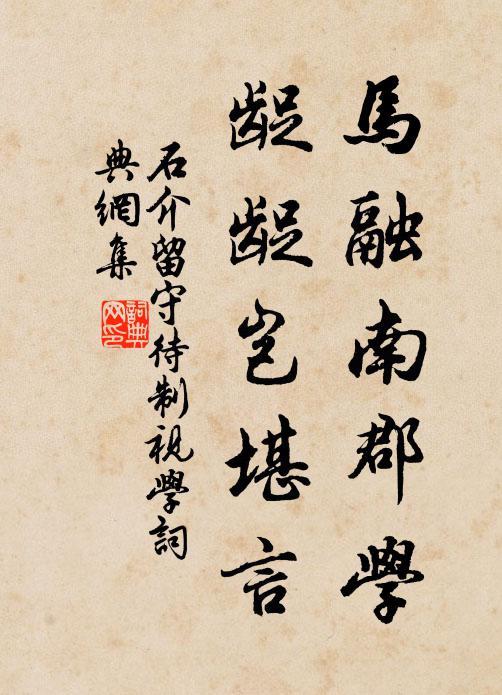 馬融南郡學
齪齪豈堪言
石介留守待制視學詞
典網集
詞典網印